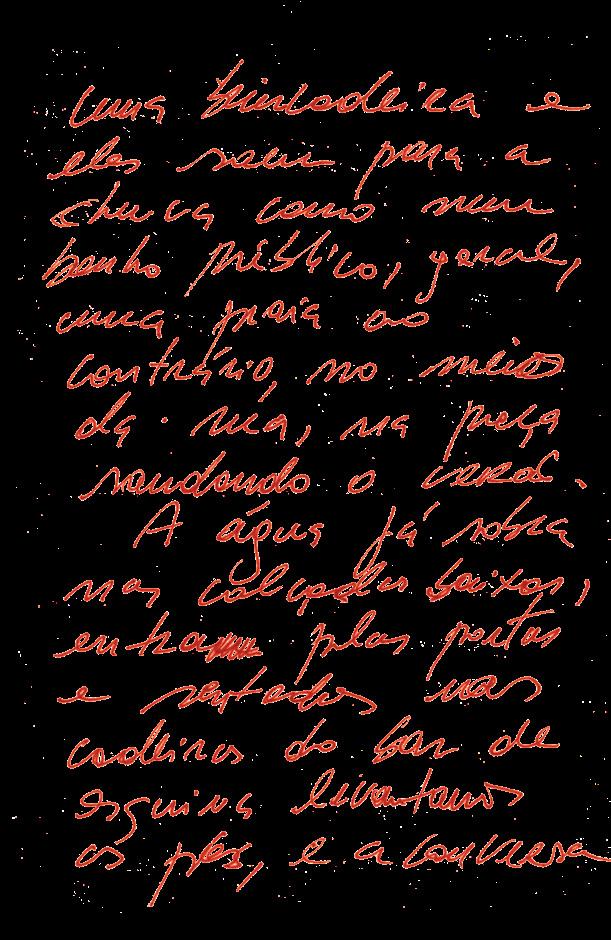 uma brincadeira e
eles saem para a
chuva como num
banho público, geral,
uma praia ao
contrário, no meio
da rua, na praça
saudando o verão.
A água já sobra
nas calçadas baixas,
entra pelas portas
e sentados nas
cadeiras do bar de
esquina levantamos
os pés, e a conversa